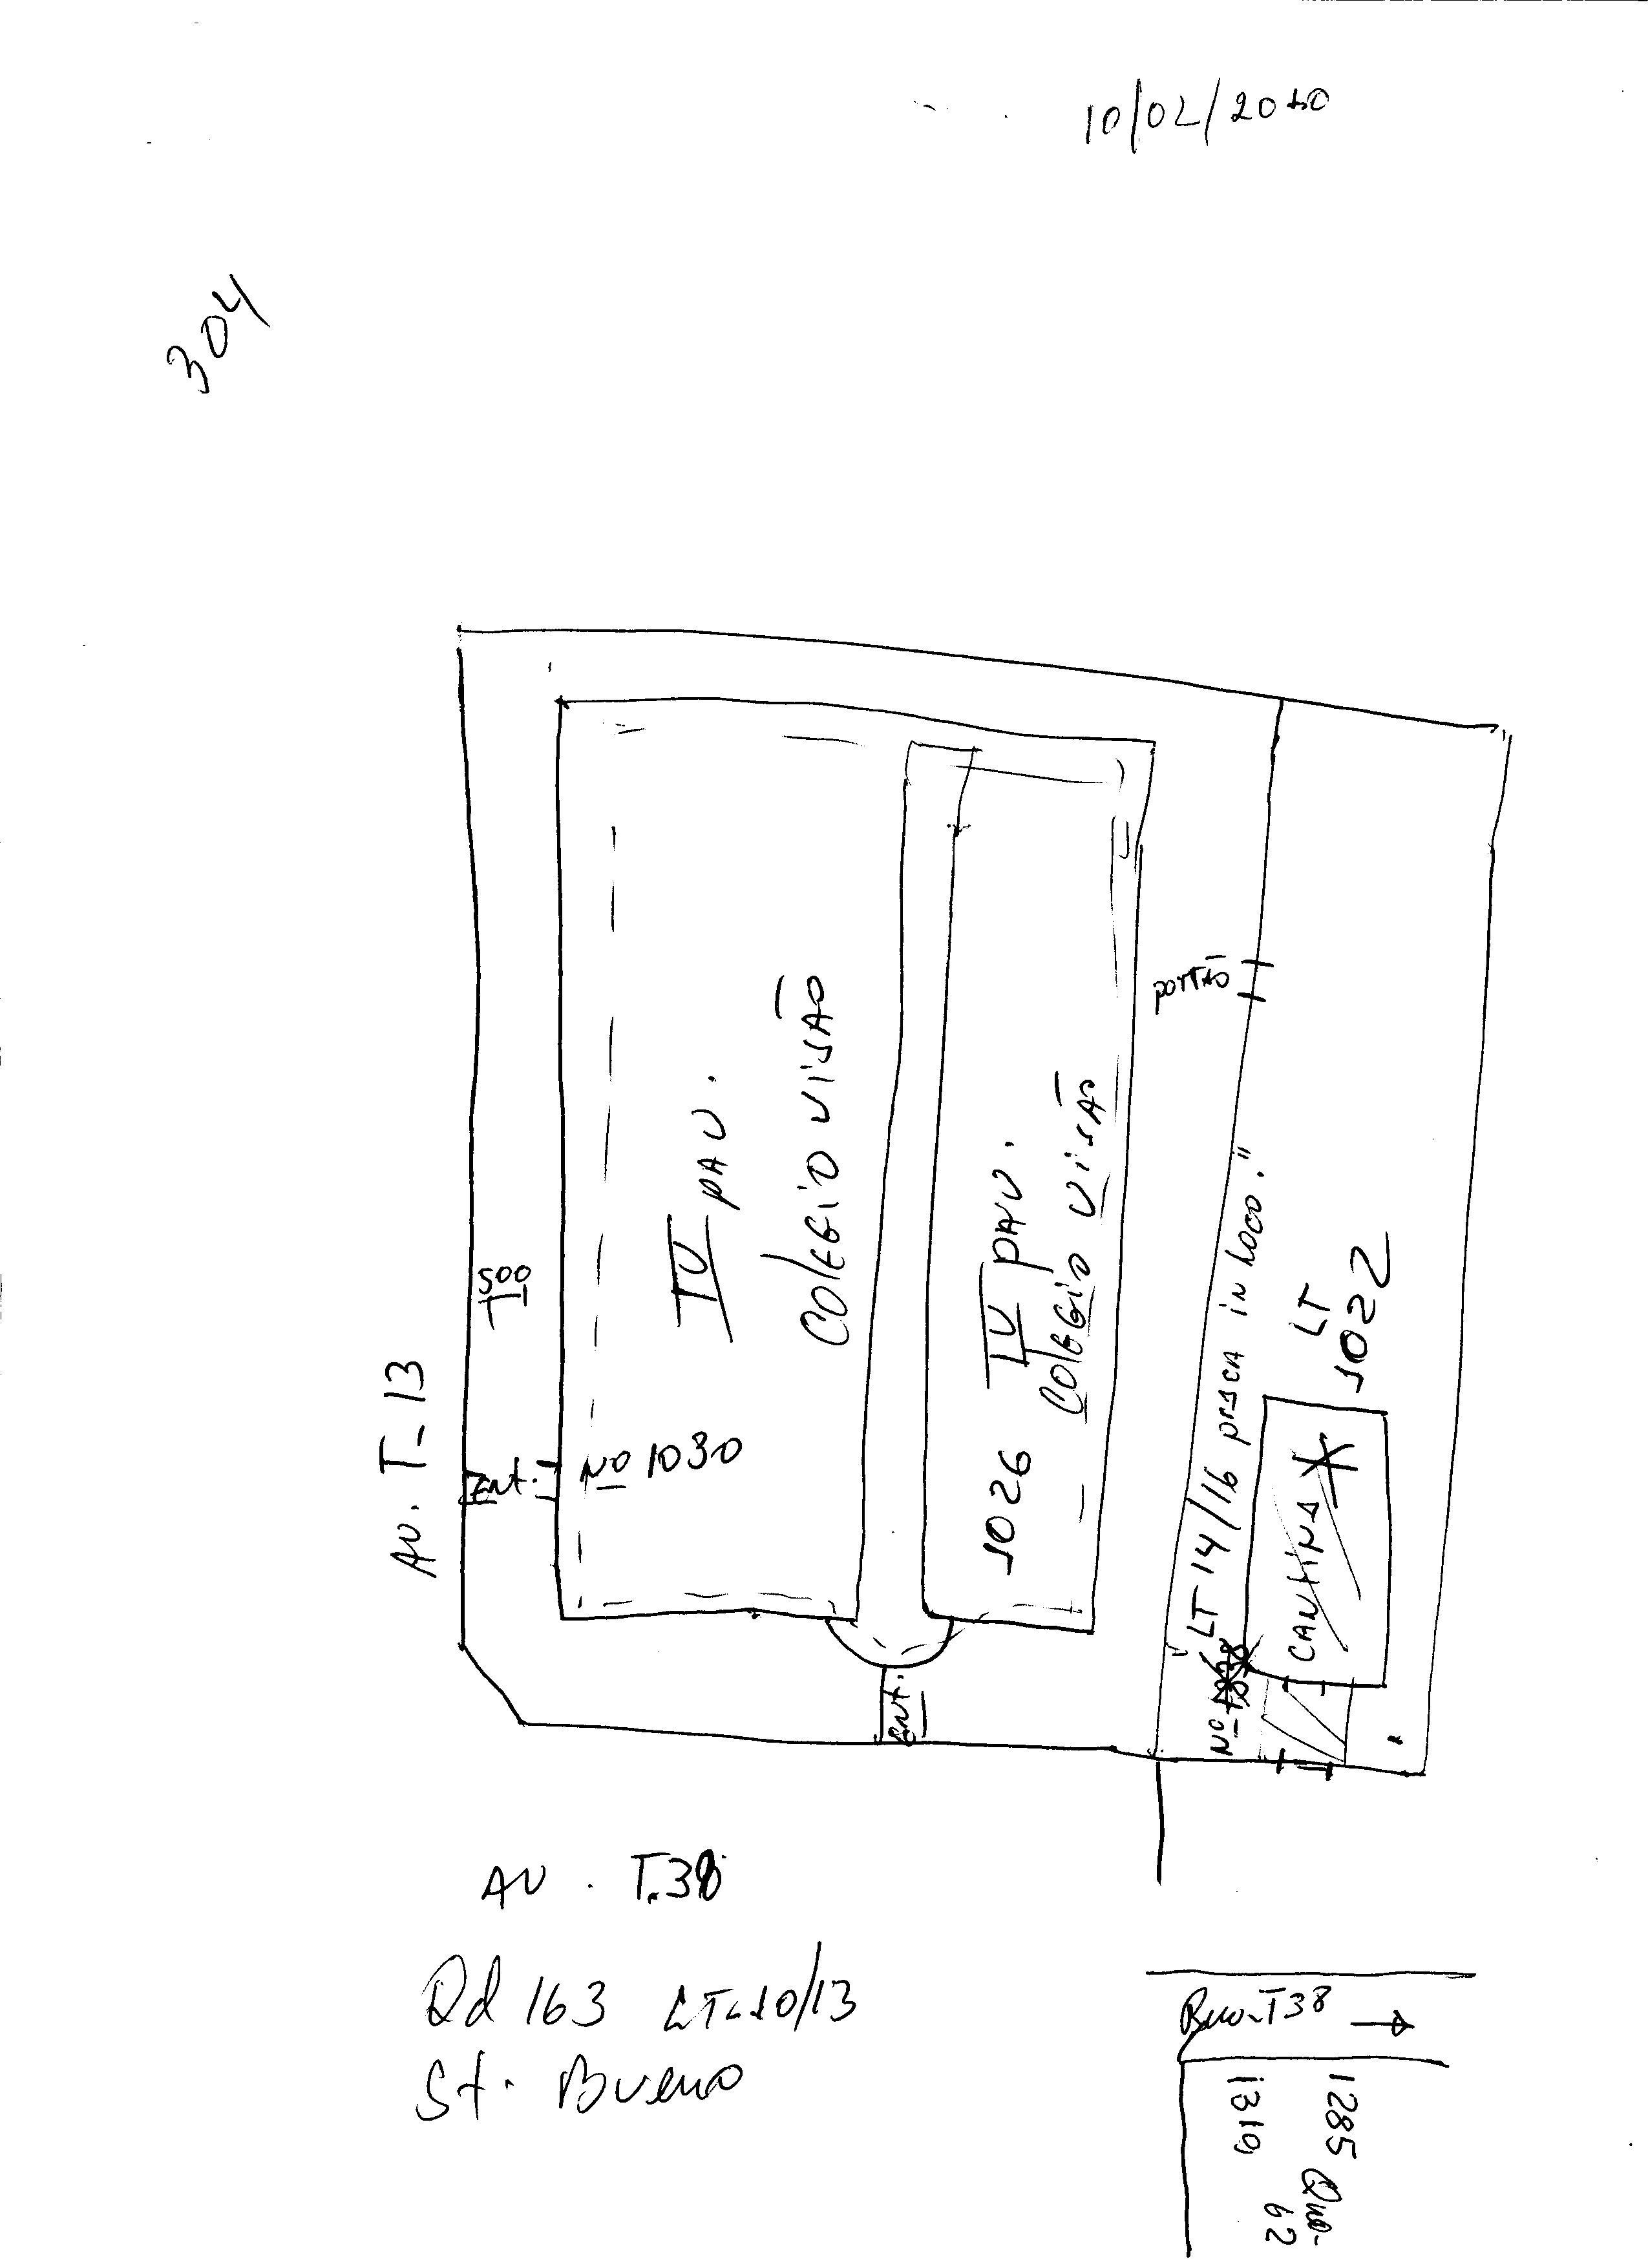 10/02/2010
304
AV. T-13
500
Ent.
Nº 1030
IV PAV.
COLEGIO VISÃO
1026
IV PAV.
COLEGIO VISÃO
PORTÃO
LT 14/16 PLACA in Loco."
Nº
CANTINA
LT
1022
Ent.
AV. T.38
Qd 163 LT-10/13
St. Bueno
Rua-T38
1285
1319
62